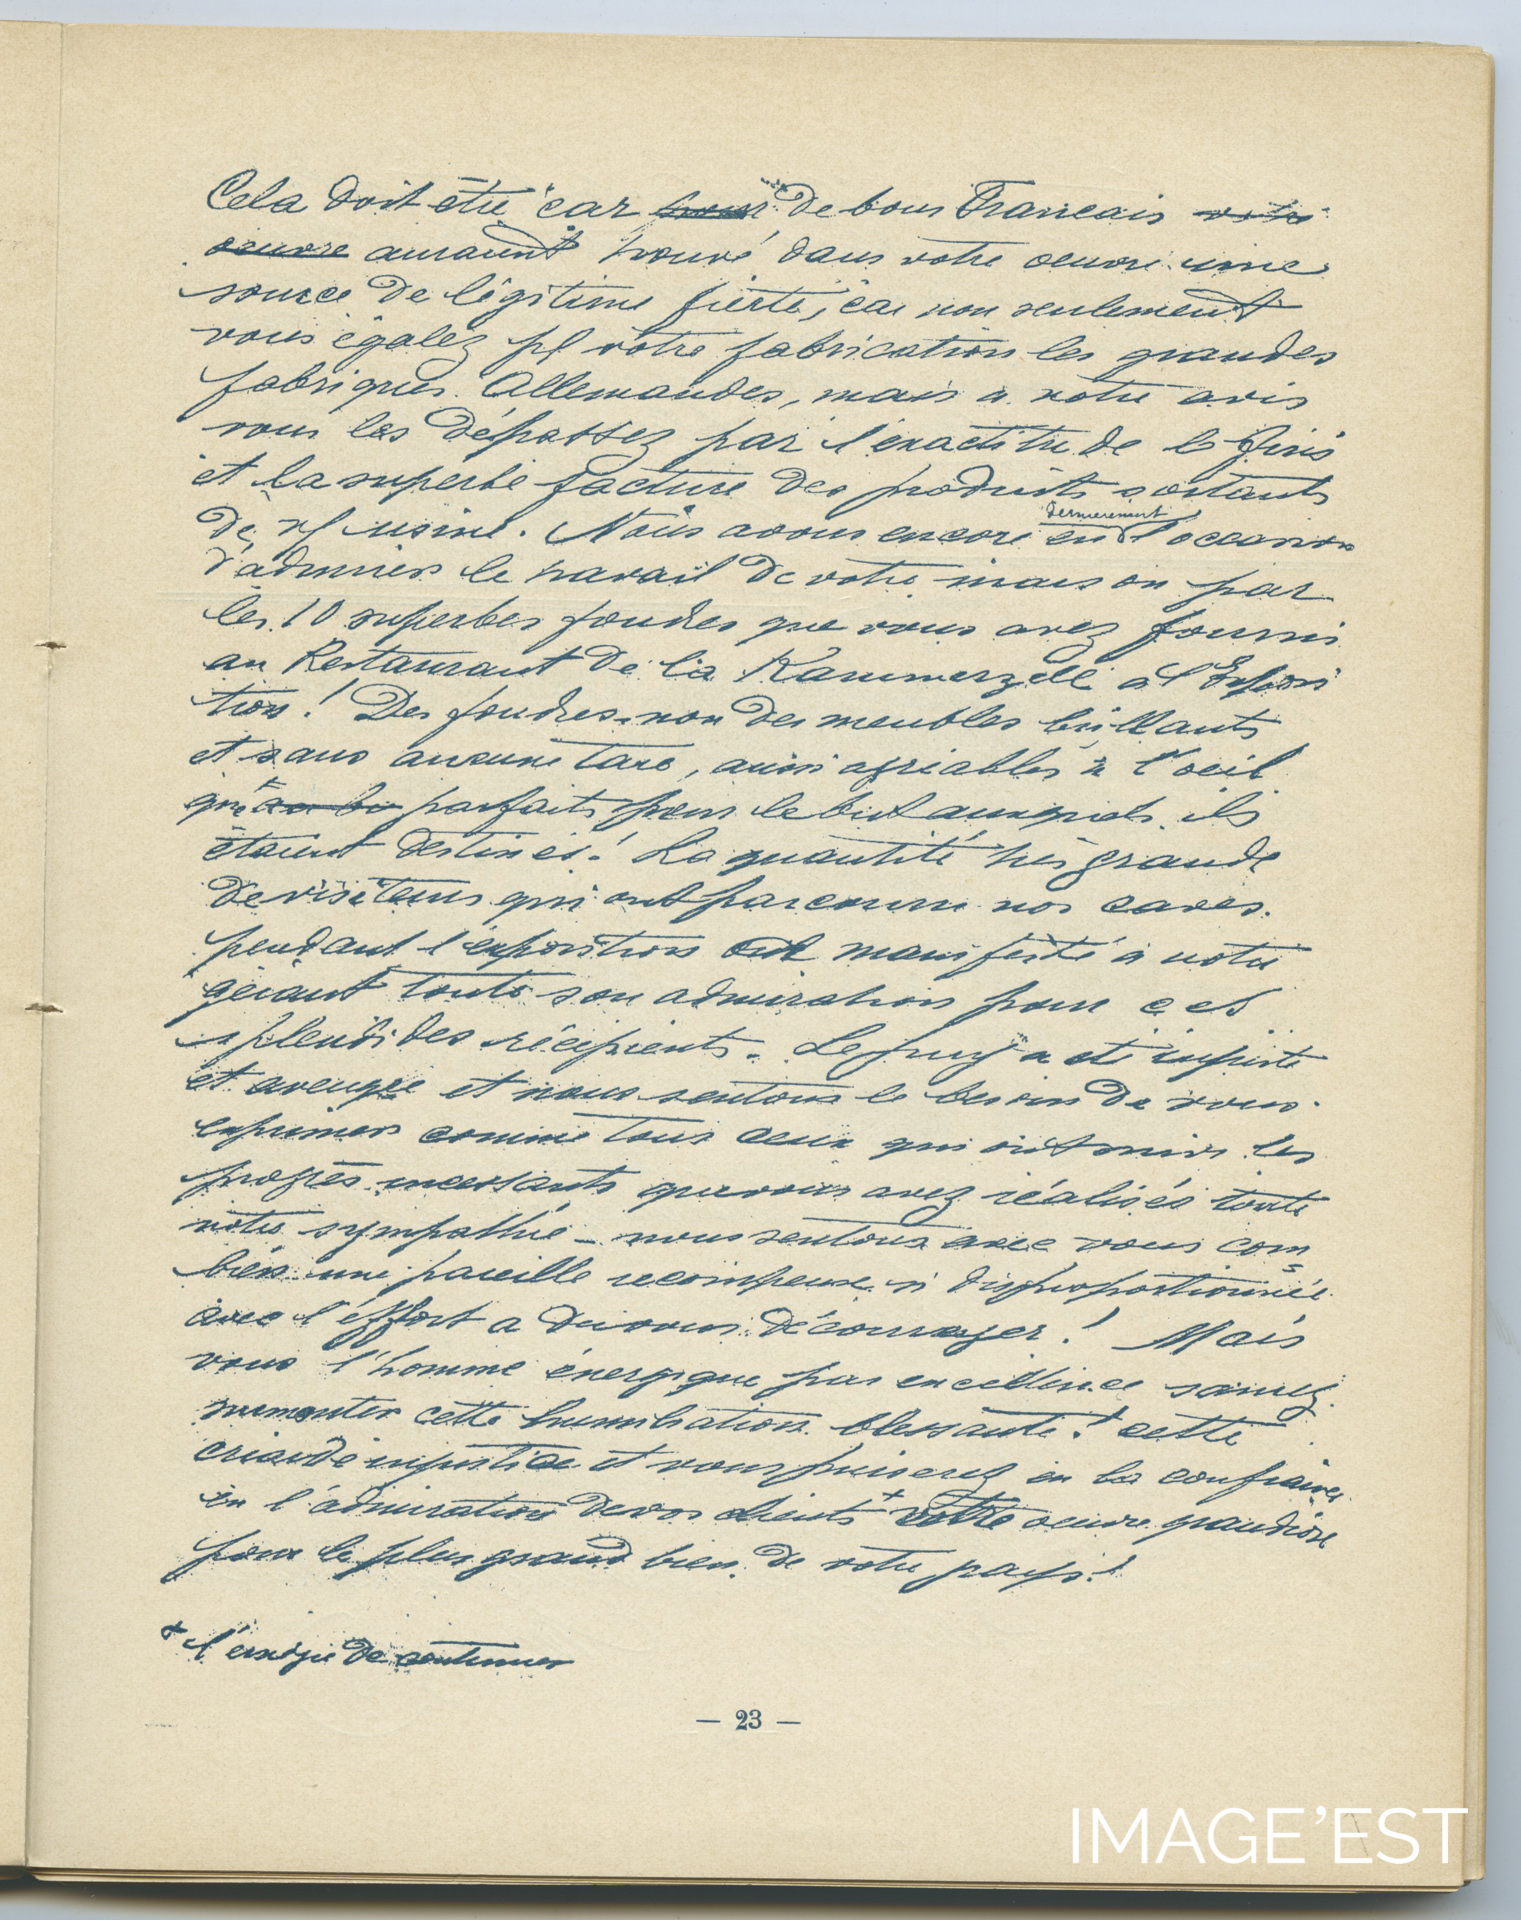 Cela doit être car pour de bons Francais votre
oeuvre auraient trouvé dans votre oeuvre une
source de légitime fierté, car non seulement
vous égalez pr votre fabrication les grandes
fabriques Allemandes, mais à notre avis
vous les dépassez par l'exactitude le fini
et la superbe facture des produits sortants
de usine. Nous avons encore eu dernierement l'occasion
d'admirer le travail de votre maison par
les 10 superbes foudres que vous avez fournis
au Restaurant de la Kammerzell à l'Exposi
tion! Des foudres non des meubles brillants
et sans aucune tare, aussi agréables à l'oeil
que parfaits pour le but auxquels ils
étaient destinés! La quantité très grande
de visiteurs qui ont parcouru nos caves
pendant l'exposition ont manifesté à notre
gérant toute son admiration pour ces
splendides récipients. Le jury a été injuste
et aveugle et nous sentons le besoin de vous
exprimer comme tous ceux qui ont suivi les
progrès incessants que vous avez réalisés toute
notre sympathie - nous sentons avec vous com=
bien une pareille recompense si disproportionnée
avec l'effort a du vous décourager! Mais
vous l'homme énergique par excellence saurez
surmonter cette humiliation blessante! cette
criarde injustice et vous puiserez en la confiance
en l'admiration de vos clients + votre oeuvre grandiose
pour le plus grand bien de votre pays!
+ l'énergie de continuer
— 23 —
IMAGE'EST